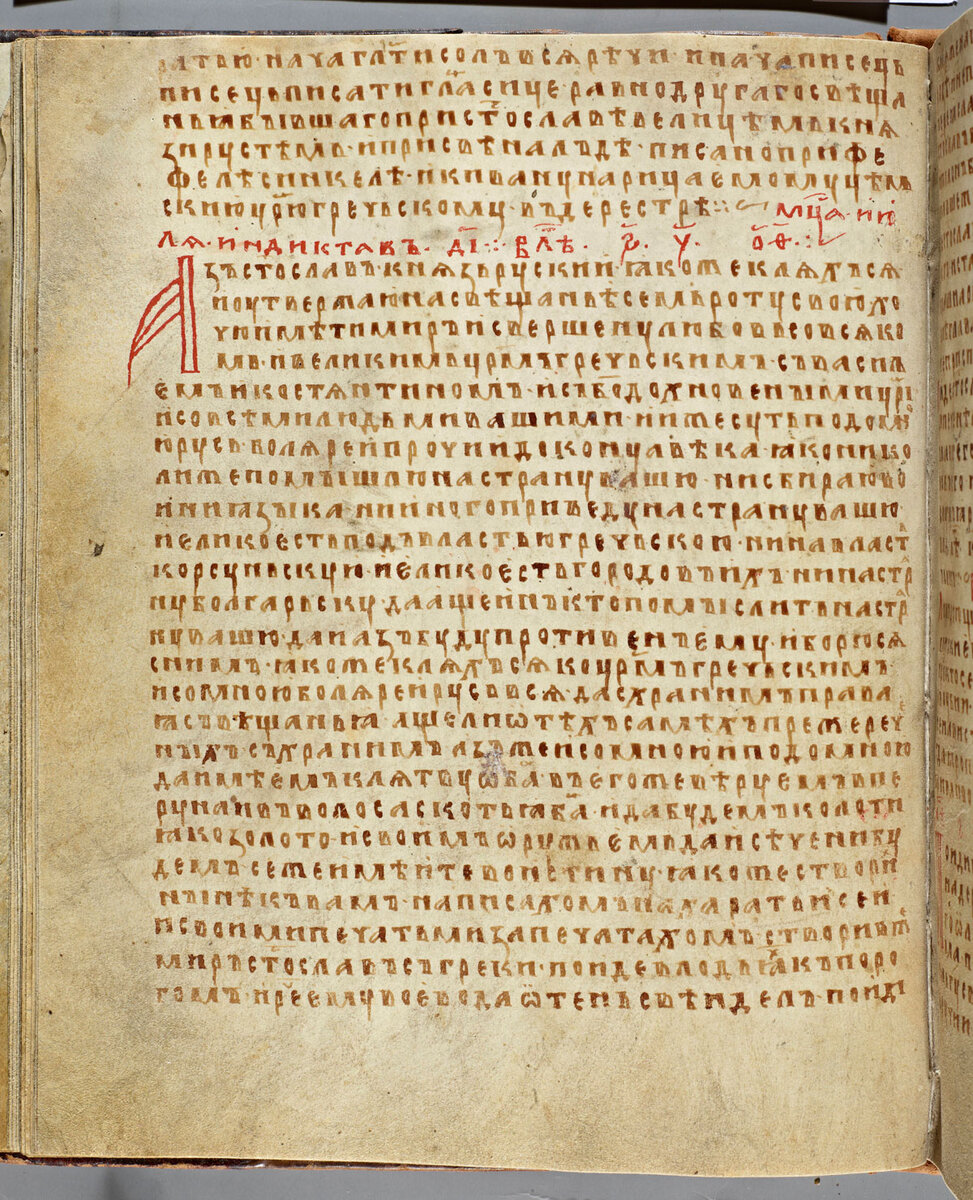 ратью · нача гл҃ти солъ вся рѣчи · и нача писець
писець писати гл҃а сице равно другаго свѣща
ньꙗ бывшаго при ст҃ославѣ велицѣмь кня
зи рустѣмь · и при свѣналъдѣ · писано при фе
фелѣ синкелѣ · и к ивану нарицаемому цѣмь
скию цр҃ю гречьскому · въ дерестрѣ ·:· мц҃а · ии
ля · индикта въ · д҃і ·:· в лѣ · ѕ҃ · у҃ · о҃ѳ ·:·
Азъ ст҃ославъ князь рускии · ꙗкоже кляхъся
и оутвержаю на свѣщаньѣ семь роту свою хо
чю имѣти миръ и свершену любовь со всяко
мь и великимь цр҃мъ гречьскимъ · съ василь
емъ и костянтиномъ · и съ бо҃дохновеными цр҃и
и со всѣми людьми вашими · и иже суть подо мною
русь боляре и прочии до конца вѣка · ꙗко нико
лиже помышлю на страну вашю · ни сбираю вои
и ни ꙗзыка · ни иного приведу на страну вашю
и елико есть подъ властью гречьскою · ни на власть
корсуньскую и елико есть городовъ ихъ · ни на стра
ну болгарьску · да аще инъ кто помыслить на стра
ну вашю да и азъ буду противенъ ему · и борюся
с нимъ · ꙗкоже кляхъся ко цр҃мъ гречьскимъ ·
и со мною боляре и русь вся · да схранимъ права
ꙗ съвѣщаньꙗ · аще ли ѿ тѣхъ самѣхъ прежере
ныхъ съхранимъ азъ же и со мною и подо мною
да имѣемъ клятву ѿ ба҃ · въ егоже вѣруемъ в пе
руна и въ волоса скотьꙗ ба҃ · и да будемъ колоти
ꙗко золото · и своимъ ѡружьемь да исѣчени бу
демъ · се же имѣите во истину · ꙗкоже створи
нынѣ къ вамъ · написахомъ на харатьи сеи
и своими печатьми запечатахомъ · створивъ же
миръ ст҃ославъ съ греки · поиде в лодьꙗ къ поро
гомъ · и рч҃е ему воевода ѿтень свѣнделъ · поиди